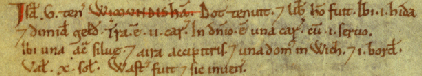 Isd̃ . V. ten̛ Dot tenuit. 7 lib̃ hō fuit. Ibi . I. hida
7 dimid̃ geld̃. Tr̃a . ē . II . car̃. In dñio . ē una car̃. cū . I. seruo.
Ibi una ac̃ siluę 7 aira accipitris. 7 una dom̃ in Wich. 7 I . bord̃.
Val̃ . X. sol̃. Wast̃ fuit 7 sic inuen̛.